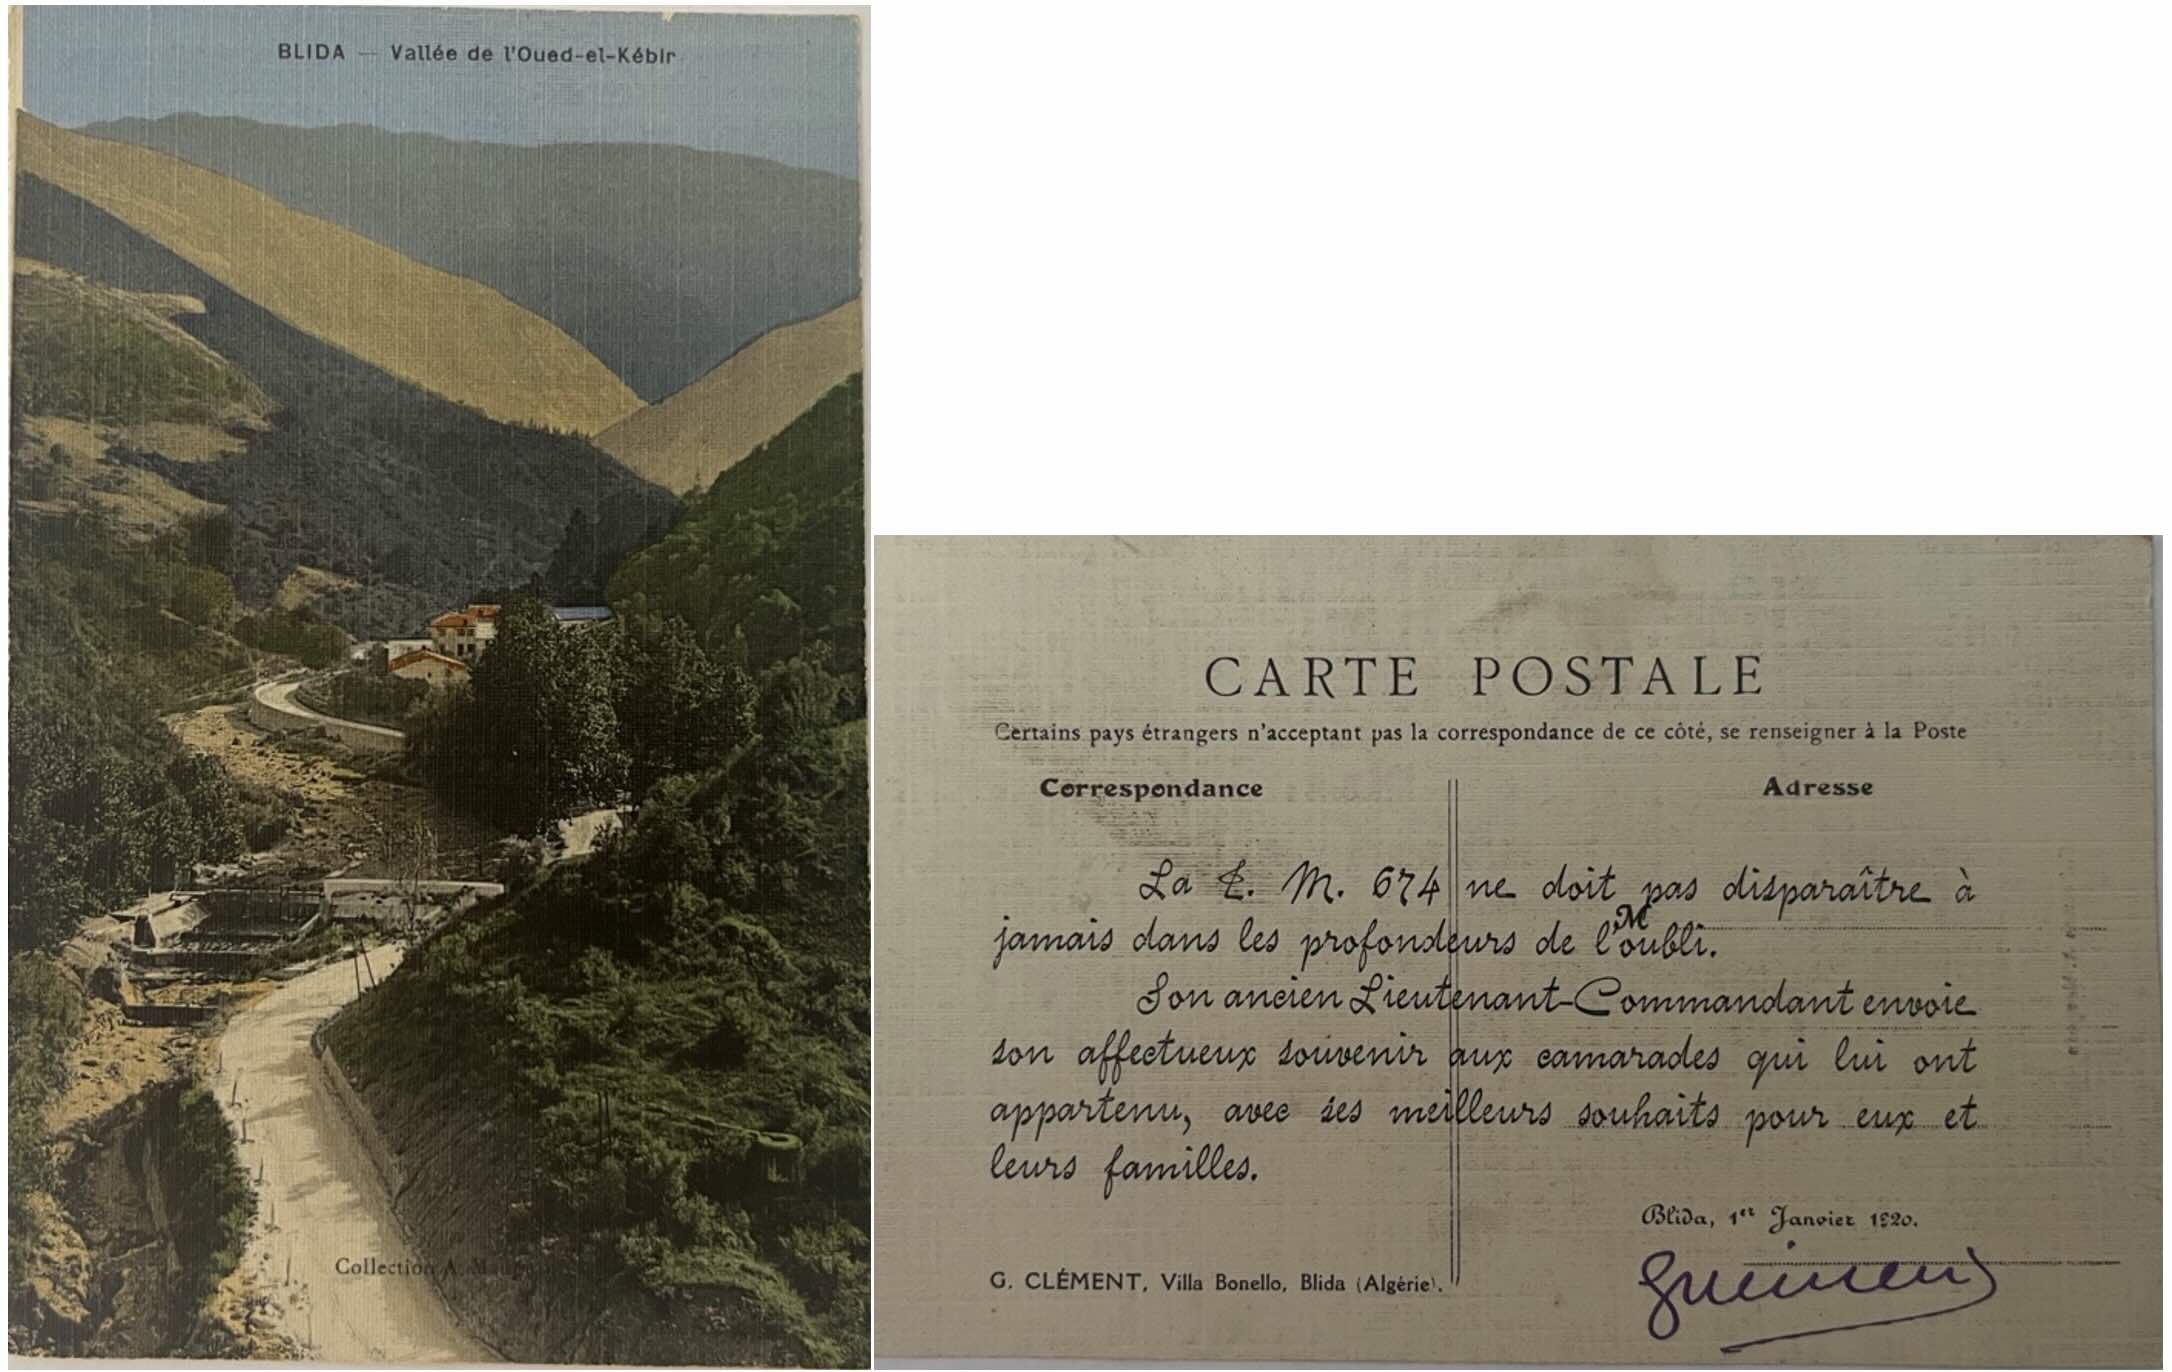 BLIDA — Vallée de l'Oued-el-Kébir
Collection A.
CARTE POSTALE
Certains pays étrangers n'acceptant pas la correspondance de ce côté, se renseigner à la Poste
Correspondance
Adresse
La T. M. 674 ne doit pas disparaître à
M
jamais dans les profondeurs de l'oubli.
Son ancien Lieutenant-Commandant envoie
son affectueux souvenir aux camarades qui lui ont
appartenu, avec ses meilleurs souhaits pour eux et
leurs familles.
Blida, 1er Janvier 1920.
G. CLÉMENT, Villa Bonello, Blida (Algérie).